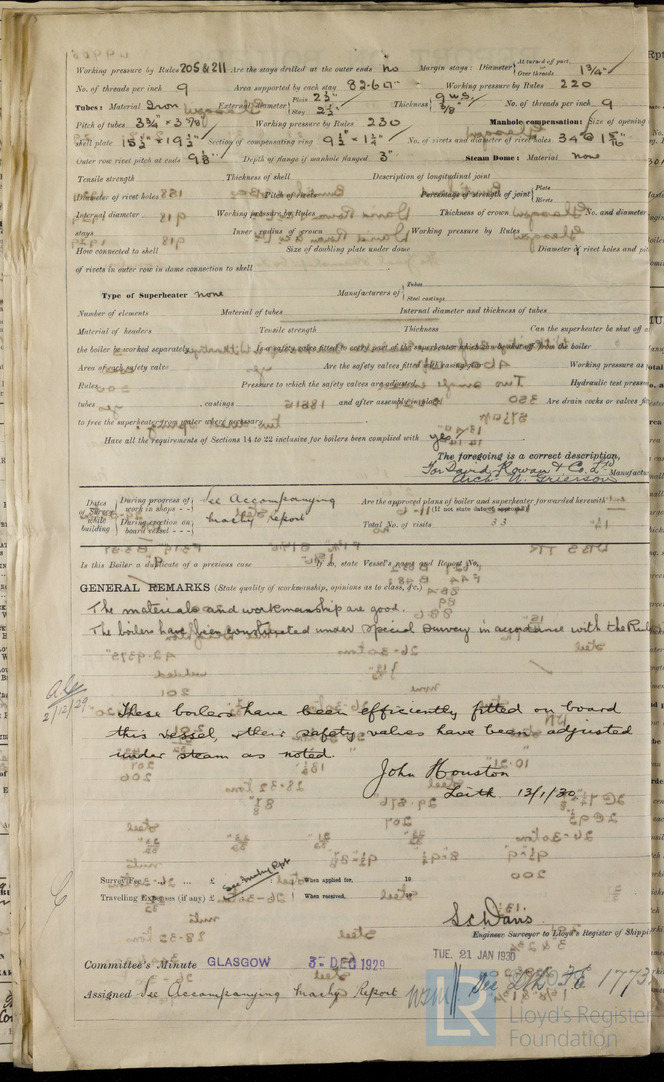 Working pressure by Rules 205 & 211 Are the stays drilled at the outer ends no Margin stays: Diameter { At turned off part, Over threads 1 3/4"
No. of threads per inch 9 Area supported by each stay 82.6 Working pressure by Rules 220
Tubes: Material Iron External Diameter { Plain 2 1/2" Stay 2 1/2" Thickness { 9 W.G. 3/8" No. of threads per inch 9
Pitch of tubes 3 3/4" × 3 7/8" Working pressure by Rules 230 Manhole compensation: Size of opening
shell plate 15 1/2" × 19 1/2" Section of compensating ring 9 1/2" × 1 1/4" No. of rivets and diameter of rivet holes 34 @ 1 5/16"
Outer row rivet pitch at ends 9 3/8" Depth of flange if manhole flanged 3" Steam Dome: Material none
Tensile strength Thickness of shell Description of longitudinal joint
Diameter of rivet holes Pitch of rivets Percentage of strength of joint { Plate Rivets
Internal diameter Working pressure by Rules Thickness of crown No. and diameter
stays Inner radius of crown Working pressure by Rules
How connected to shell Size of doubling plate under dome Diameter of rivet holes and pi
of rivets in outer row in dome connection to shell
Type of Superheater none Manufacturers of { Tubes Steel castings
Number of elements Material of tubes Internal diameter and thickness of tubes
Material of headers Tensile strength Thickness Can the superheater be shut off
the boiler be worked separately Is a safety valve fitted to every part of the superheater which can be shut off from the boiler
Area of each safety valve Are the safety valves fitted with easing gear Working pressure as
Rules Pressure to which the safety valves are adjusted Hydraulic test press
tubes castings and after assembly in place Are drain cocks or valves fi
to free the superheater from water where necessary
Have all the requirements of Sections 14 to 22 inclusive for boilers been complied with yes
The foregoing is a correct description,
For David Rowan & Co. Ltd Manufact
Arch. W. Grierson
Dates of Survey while building { During progress of work in shops - - See Accompanying Are the approved plans of boiler and superheater forwarded herewith (If not state date of approval)
During erection on board vessel - - - Machy report Total No. of visits 33
Is this Boiler a duplicate of a previous case If so, state Vessel's name and Report No.
GENERAL REMARKS (State quality of workmanship, opinions as to class, &c.)
The materials and workmanship are good.
The boilers have been constructed under special survey in accordance with the Rul
2/12/29
These boilers have been efficiently fitted on board
this vessel, & their safety valves have been adjusted
under steam as noted.
John Houston
Leith. 13/1/30
Survey Fee ... ... £ See Machy Rpt When applied for, 19
Travelling Expenses (if any) £ When received,
S C Davis
Engineer Surveyor to Lloyd's Register of Shippi
Committee's Minute GLASGOW 3 - DEC 1929 TUE. 21 JAN 1930
Assigned See Accompanying Machy Report
See Lth. F.E. 1773
LR Lloyd's Register
Foundation